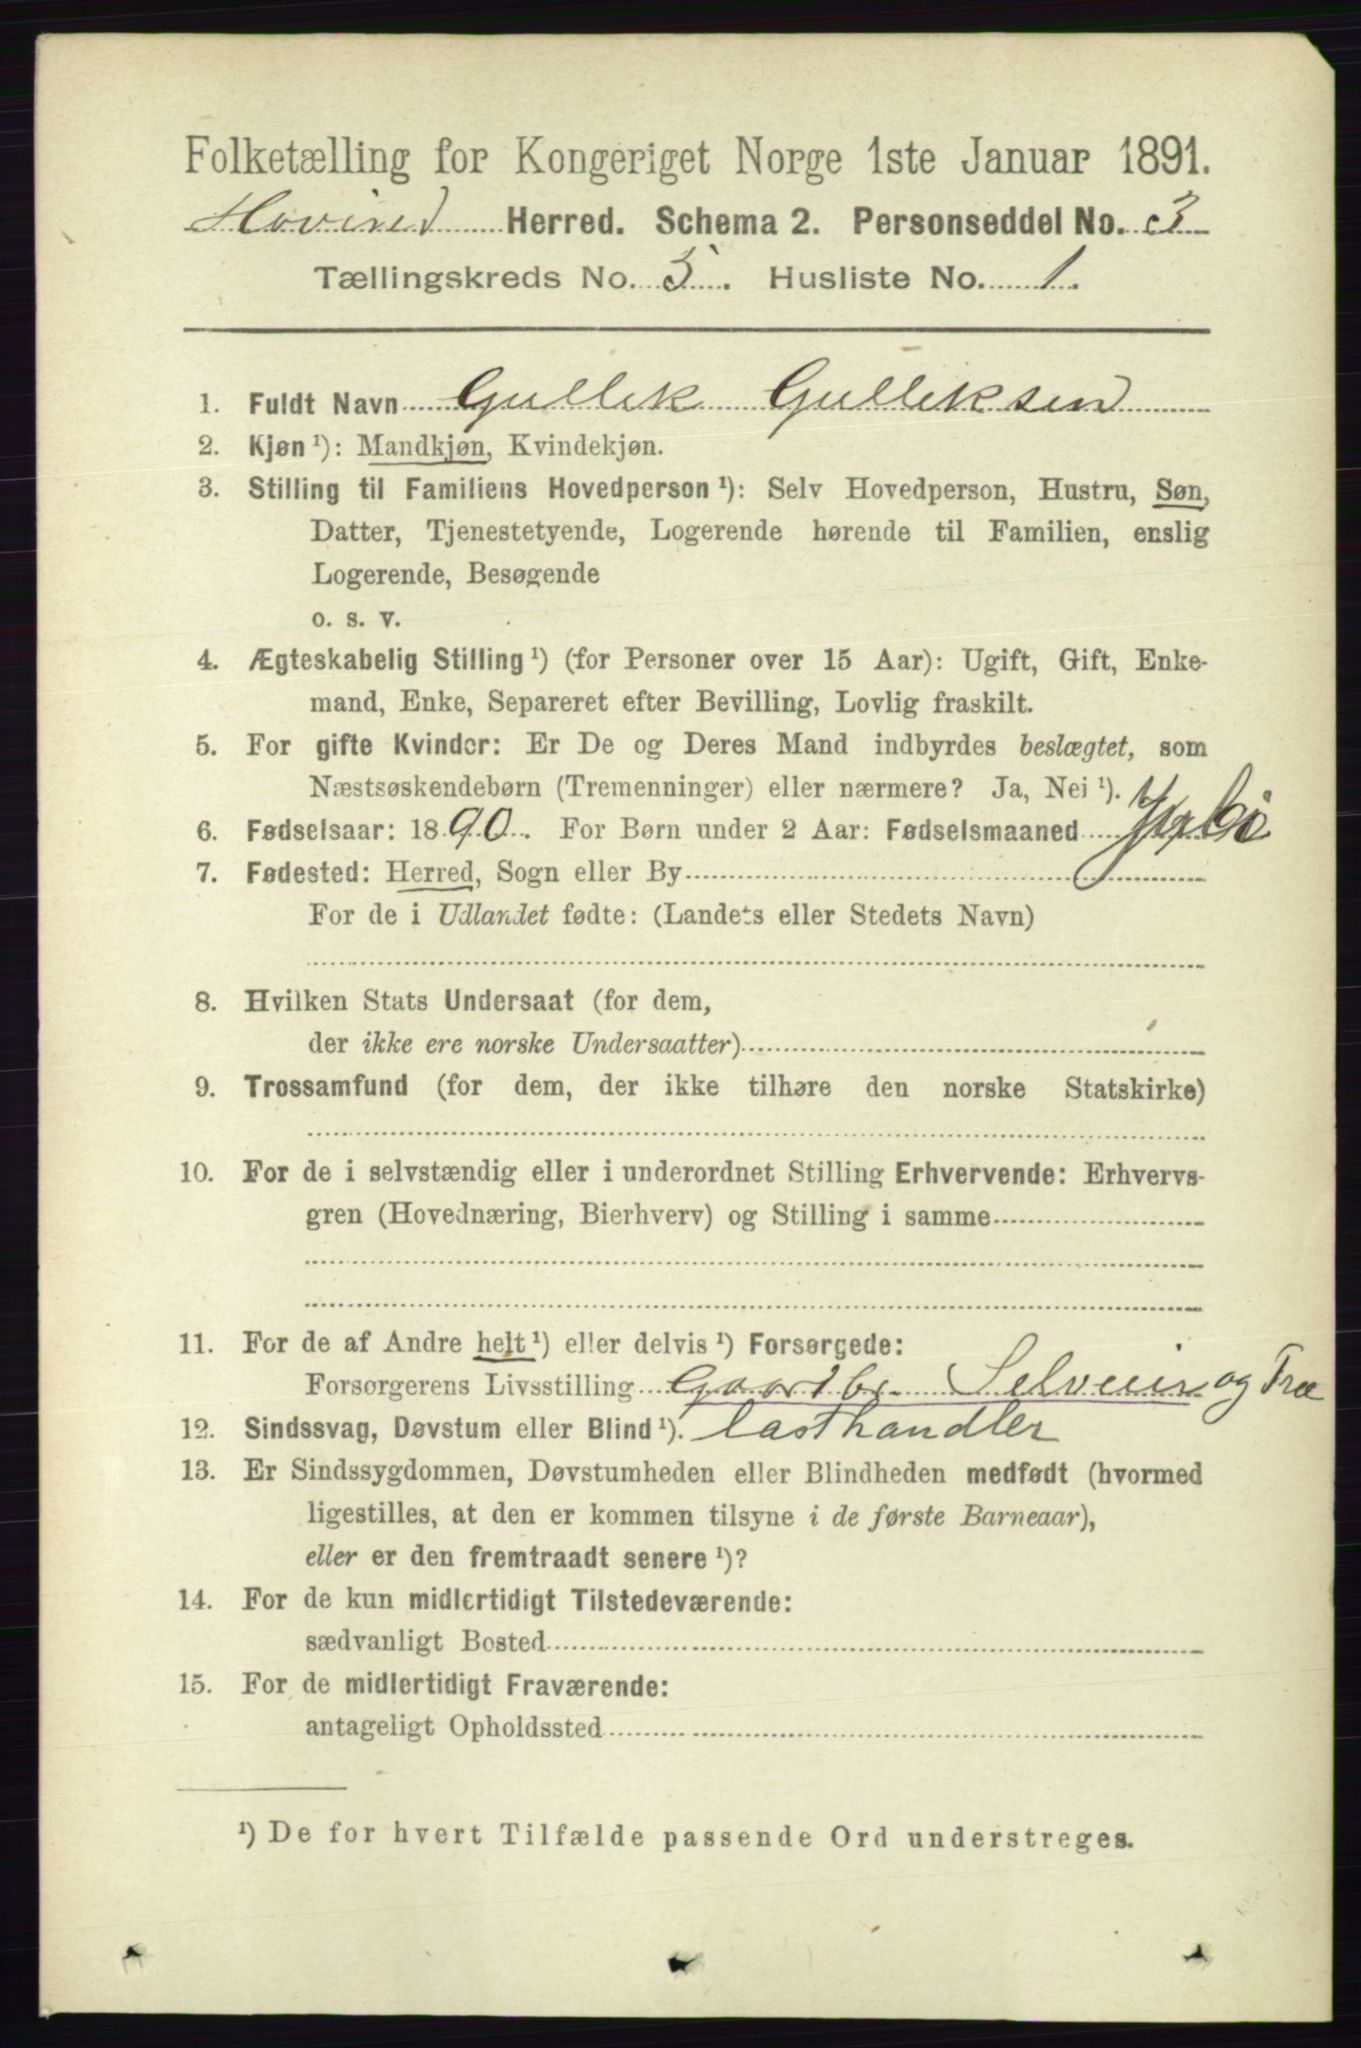 Folketælling for Kongeriget Norge 1ste Januar 1891.
Hovind Herred. Schema 2. Personseddel No. 3
Tællingskreds No. 5. Husliste No. 1.
1. Fuldt Navn Gullik Gulliksen
2. Kjøn¹): Mandkjøn, Kvindekjøn.
3. Stilling til Familiens Hovedperson¹): Selv Hovedperson, Hustru, Søn,
Datter, Tjenestetyende, Logerende hørende til Familien, enslig
Logerende, Besøgende
o. s. v.
4. Ægteskabelig Stilling¹) (for Personer over 15 Aar): Ugift, Gift, Enke-
mand, Enke, Separeret efter Bevilling, Lovlig fraskilt.
5. For gifte Kvinder: Er De og Deres Mand indbyrdes beslægtet, som
Næstsøskendebørn (Tremenninger) eller nærmere? Ja, Nei¹).
6. Fødselsaar: 1890. For Børn under 2 Aar: Fødselsmaaned
7. Fødested: Herred, Sogn eller By
For de i Udlandet fødte: (Landets eller Stedets Navn)
8. Hvilken Stats Undersaat (for dem,
der ikke ere norske Undersaatter)
9. Trossamfund (for dem, der ikke tilhøre den norske Statskirke)
10. For de i selvstændig eller i underordnet Stilling Erhvervende: Erhvervs-
gren (Hovednæring, Bierhverv) og Stilling i samme
11. For de af Andre helt¹) eller delvis¹) Forsørgede:
Forsørgerens Livsstilling Gaardbr. Selveier og Træ
12. Sindssvag, Døvstum eller Blind¹). lasthandler
13. Er Sindssygdommen, Døvstumheden eller Blindheden medfødt (hvormed
ligestilles, at den er kommen tilsyne i de første Barneaar),
eller er den fremtraadt senere¹)?
14. For de kun midlertidigt Tilstedeværende:
sædvanligt Bosted
15. For de midlertidigt Fraværende:
antageligt Opholdssted
¹) De for hvert Tilfælde passende Ord understreges.